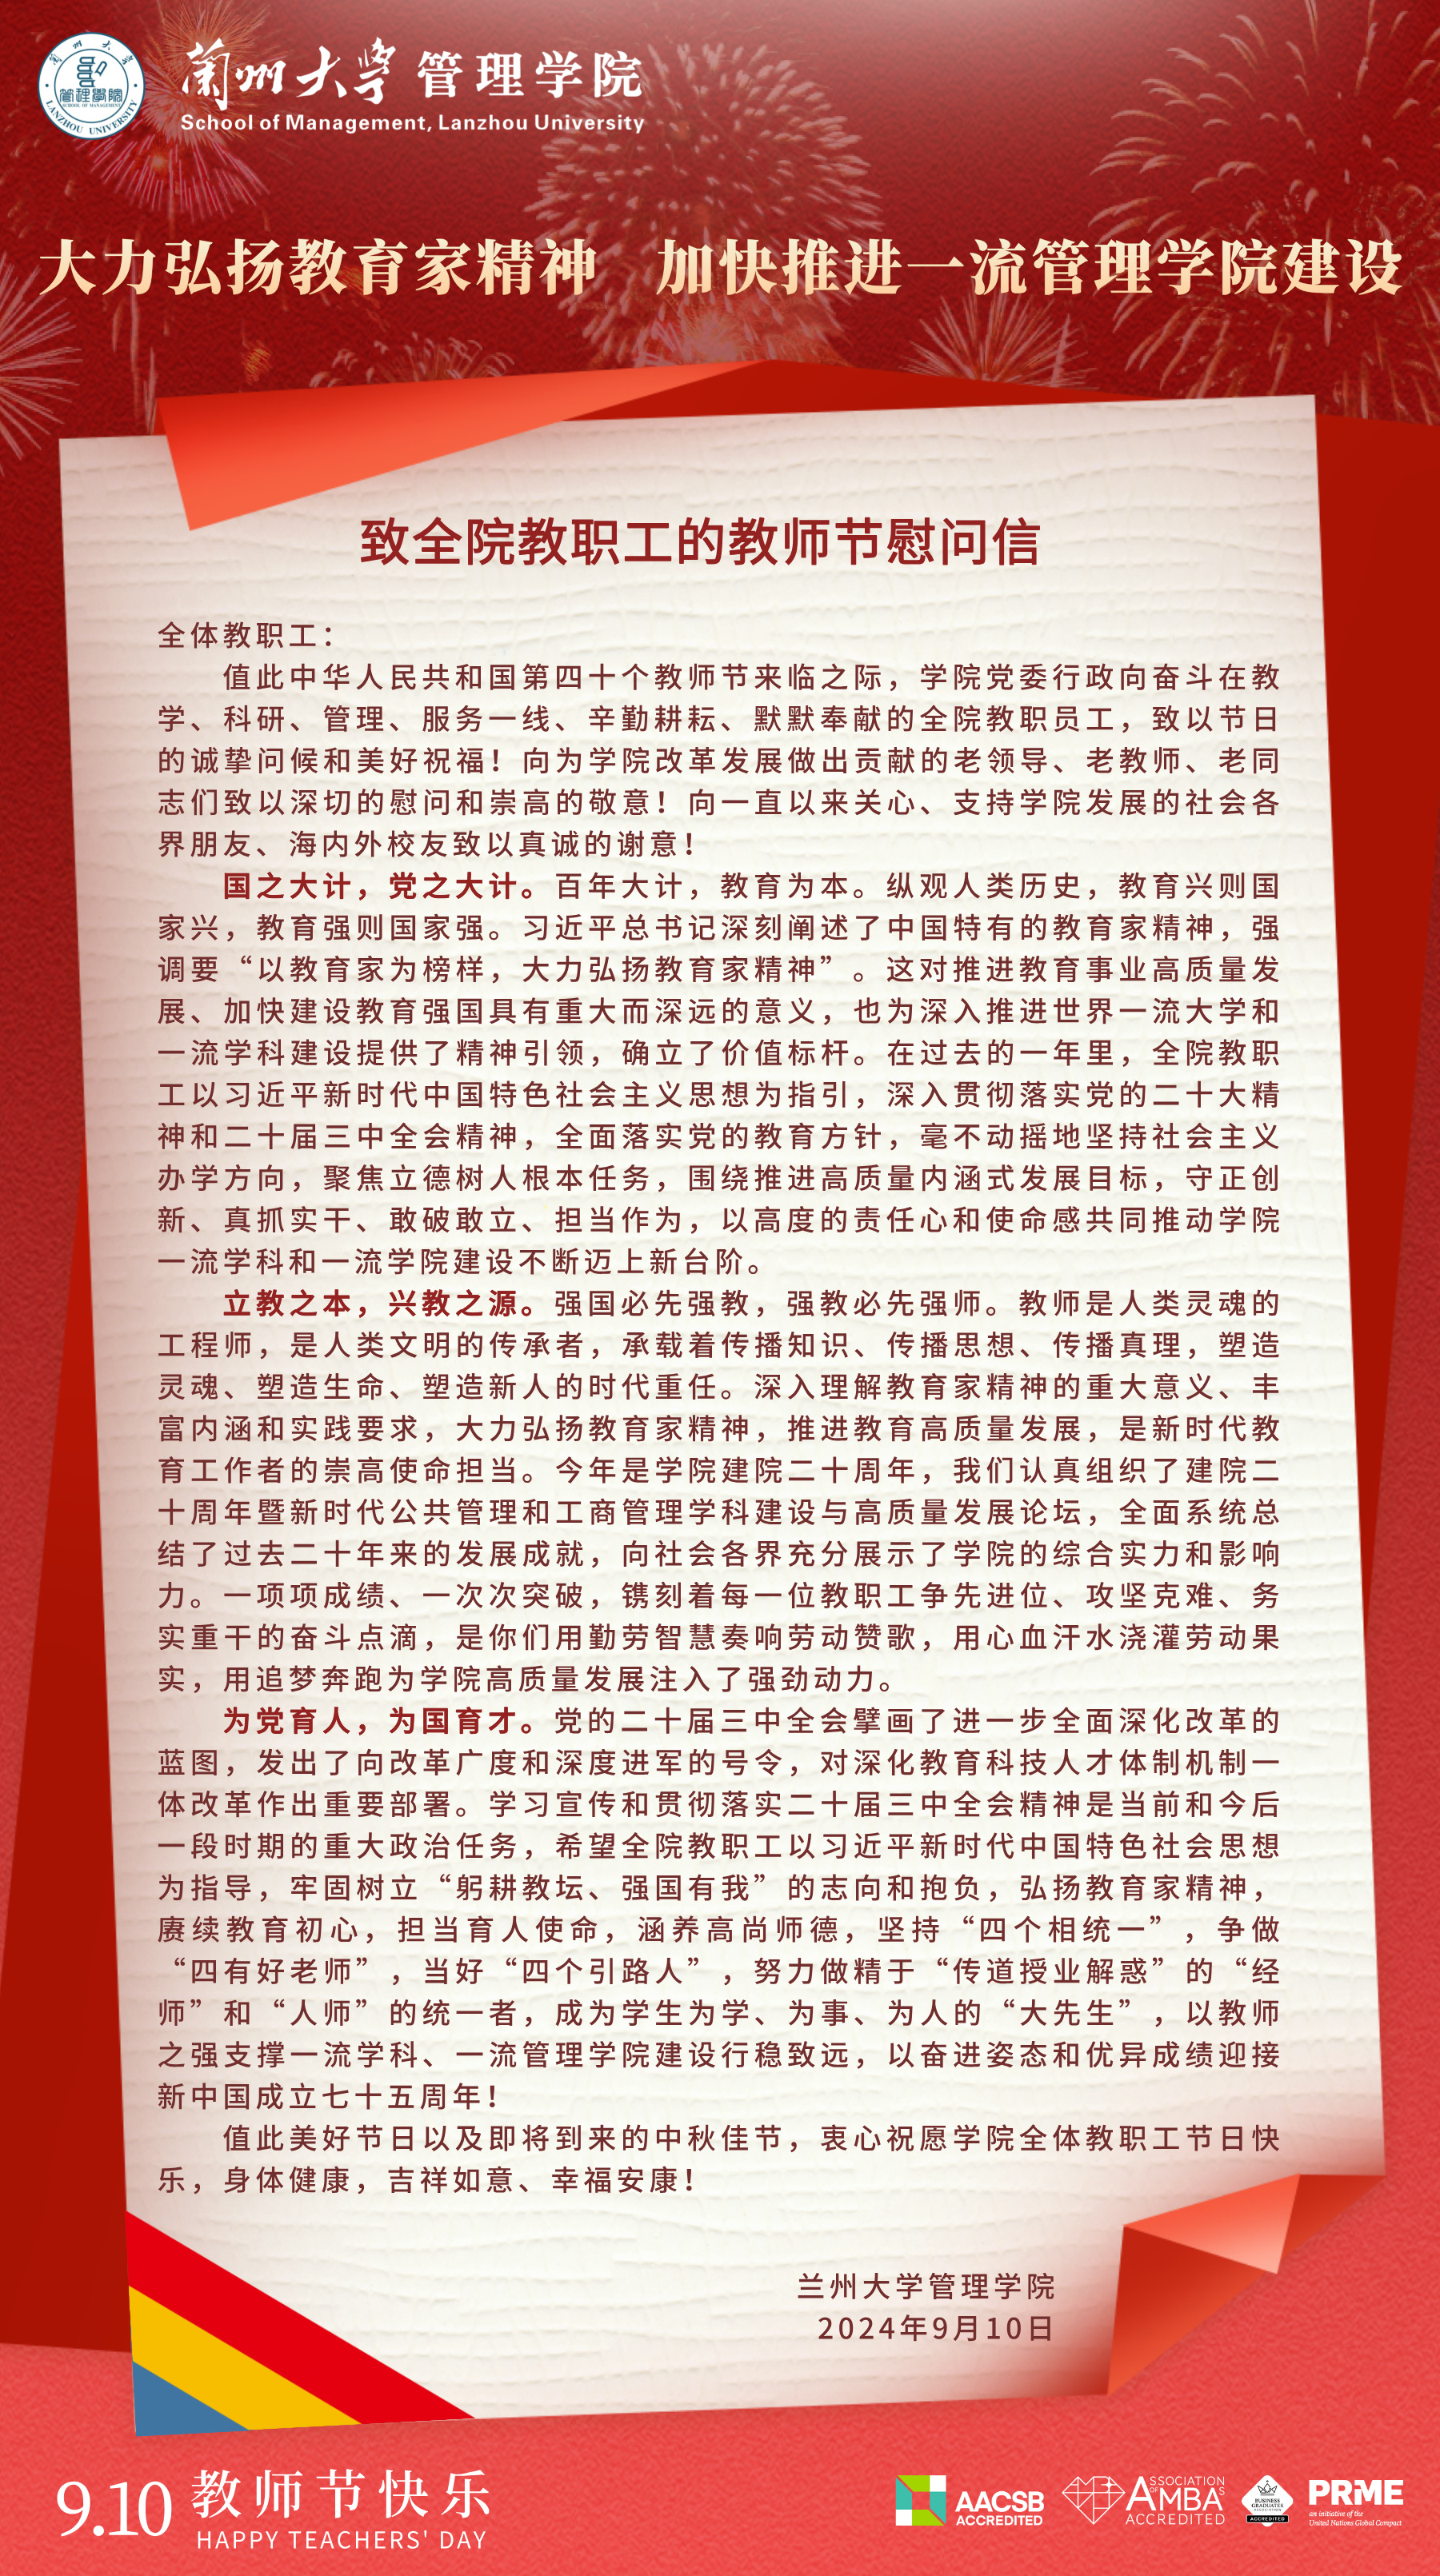 兰州大学
管理学院
LANZHOU UNIVERSITY
兰州大学 管理学院
School of Management, Lanzhou University
大力弘扬教育家精神 加快推进一流管理学院建设
致全院教职工的教师节慰问信
全体教职工：
值此中华人民共和国第四十个教师节来临之际，学院党委行政向奋斗在教
学、科研、管理、服务一线、辛勤耕耘、默默奉献的全院教职员工，致以节日
的诚挚问候和美好祝福！向为学院改革发展做出贡献的老领导、老教师、老同
志们致以深切的慰问和崇高的敬意！向一直以来关心、支持学院发展的社会各
界朋友、海内外校友致以真诚的谢意！
国之大计，党之大计。百年大计，教育为本。纵观人类历史，教育兴则国
家兴，教育强则国家强。习近平总书记深刻阐述了中国特有的教育家精神，强
调要“以教育家为榜样，大力弘扬教育家精神”。这对推进教育事业高质量发
展、加快建设教育强国具有重大而深远的意义，也为深入推进世界一流大学和
一流学科建设提供了精神引领，确立了价值标杆。在过去的一年里，全院教职
工以习近平新时代中国特色社会主义思想为指引，深入贯彻落实党的二十大精
神和二十届三中全会精神，全面落实党的教育方针，毫不动摇地坚持社会主义
办学方向，聚焦立德树人根本任务，围绕推进高质量内涵式发展目标，守正创
新、真抓实干、敢破敢立、担当作为，以高度的责任心和使命感共同推动学院
一流学科和一流学院建设不断迈上新台阶。
立教之本，兴教之源。强国必先强教，强教必先强师。教师是人类灵魂的
工程师，是人类文明的传承者，承载着传播知识、传播思想、传播真理，塑造
灵魂、塑造生命、塑造新人的时代重任。深入理解教育家精神的重大意义、丰
富内涵和实践要求，大力弘扬教育家精神，推进教育高质量发展，是新时代教
育工作者的崇高使命担当。今年是学院建院二十周年，我们认真组织了建院二
十周年暨新时代公共管理和工商管理学科建设与高质量发展论坛，全面系统总
结了过去二十年来的发展成就，向社会各界充分展示了学院的综合实力和影响
力。一项项成绩、一次次突破，镌刻着每一位教职工争先进位、攻坚克难、务
实重干的奋斗点滴，是你们用勤劳智慧奏响劳动赞歌，用心血汗水浇灌劳动果
实，用追梦奔跑为学院高质量发展注入了强劲动力。
为党育人，为国育才。党的二十届三中全会擘画了进一步全面深化改革的
蓝图，发出了向改革广度和深度进军的号令，对深化教育科技人才体制机制一
体改革作出重要部署。学习宣传和贯彻落实二十届三中全会精神是当前和今后
一段时期的重大政治任务，希望全院教职工以习近平新时代中国特色社会思想
为指导，牢固树立“躬耕教坛、强国有我”的志向和抱负，弘扬教育家精神，
赓续教育初心，担当育人使命，涵养高尚师德，坚持“四个相统一”，争做
“四有好老师”，当好“四个引路人”，努力做精于“传道授业解惑”的“经
师”和“人师”的统一者，成为学生为学、为事、为人的“大先生”，以教师
之强支撑一流学科、一流管理学院建设行稳致远，以奋进姿态和优异成绩迎接
新中国成立七十五周年！
值此美好节日以及即将到来的中秋佳节，衷心祝愿学院全体教职工节日快
乐，身体健康，吉祥如意、幸福安康！
兰州大学管理学院
2024年9月10日
9.10 教师节快乐
HAPPY TEACHERS' DAY
AACSB
ACCREDITED
ASSOCIATION OF MBAS
ACCREDITED
BUSINESS
GRADUATES
ASSOCIATION
ACCREDITED
PRME
an initiative of the
United Nations Global Compact